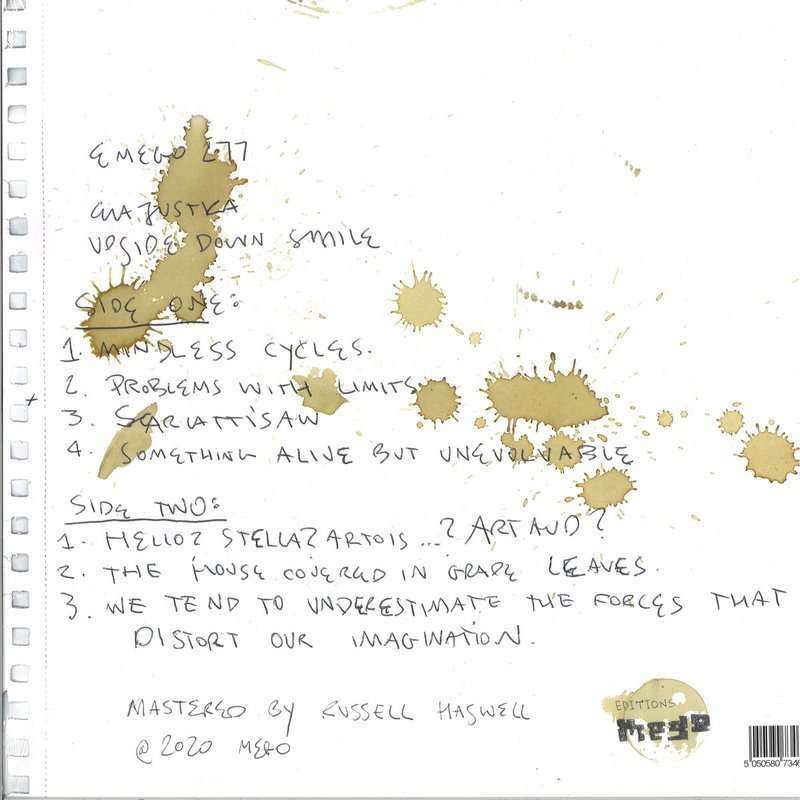 EMEGO 277
GIAJUSTKA
UPSIDE DOWN SMILE
SIDE ONE:
1. MINDLESS CYCLES.
2. PROBLEMS WITH LIMITS
3. SCARLATTISAW
4. SOMETHING ALIVE BUT UNEVOLVABLE
SIDE TWO:
1. HELLO? STELLA? ARTOIS...? ARTAUD?
2. THE HOUSE COVERED IN GRAPE LEAVES.
3. WE TEND TO UNDERESTIMATE THE FORCES THAT
DISTORT OUR IMAGINATION.
MASTERED BY RUSSELL HASWELL
@ 2020 MEGO
EDITIONS
Mego
5 050580 7346